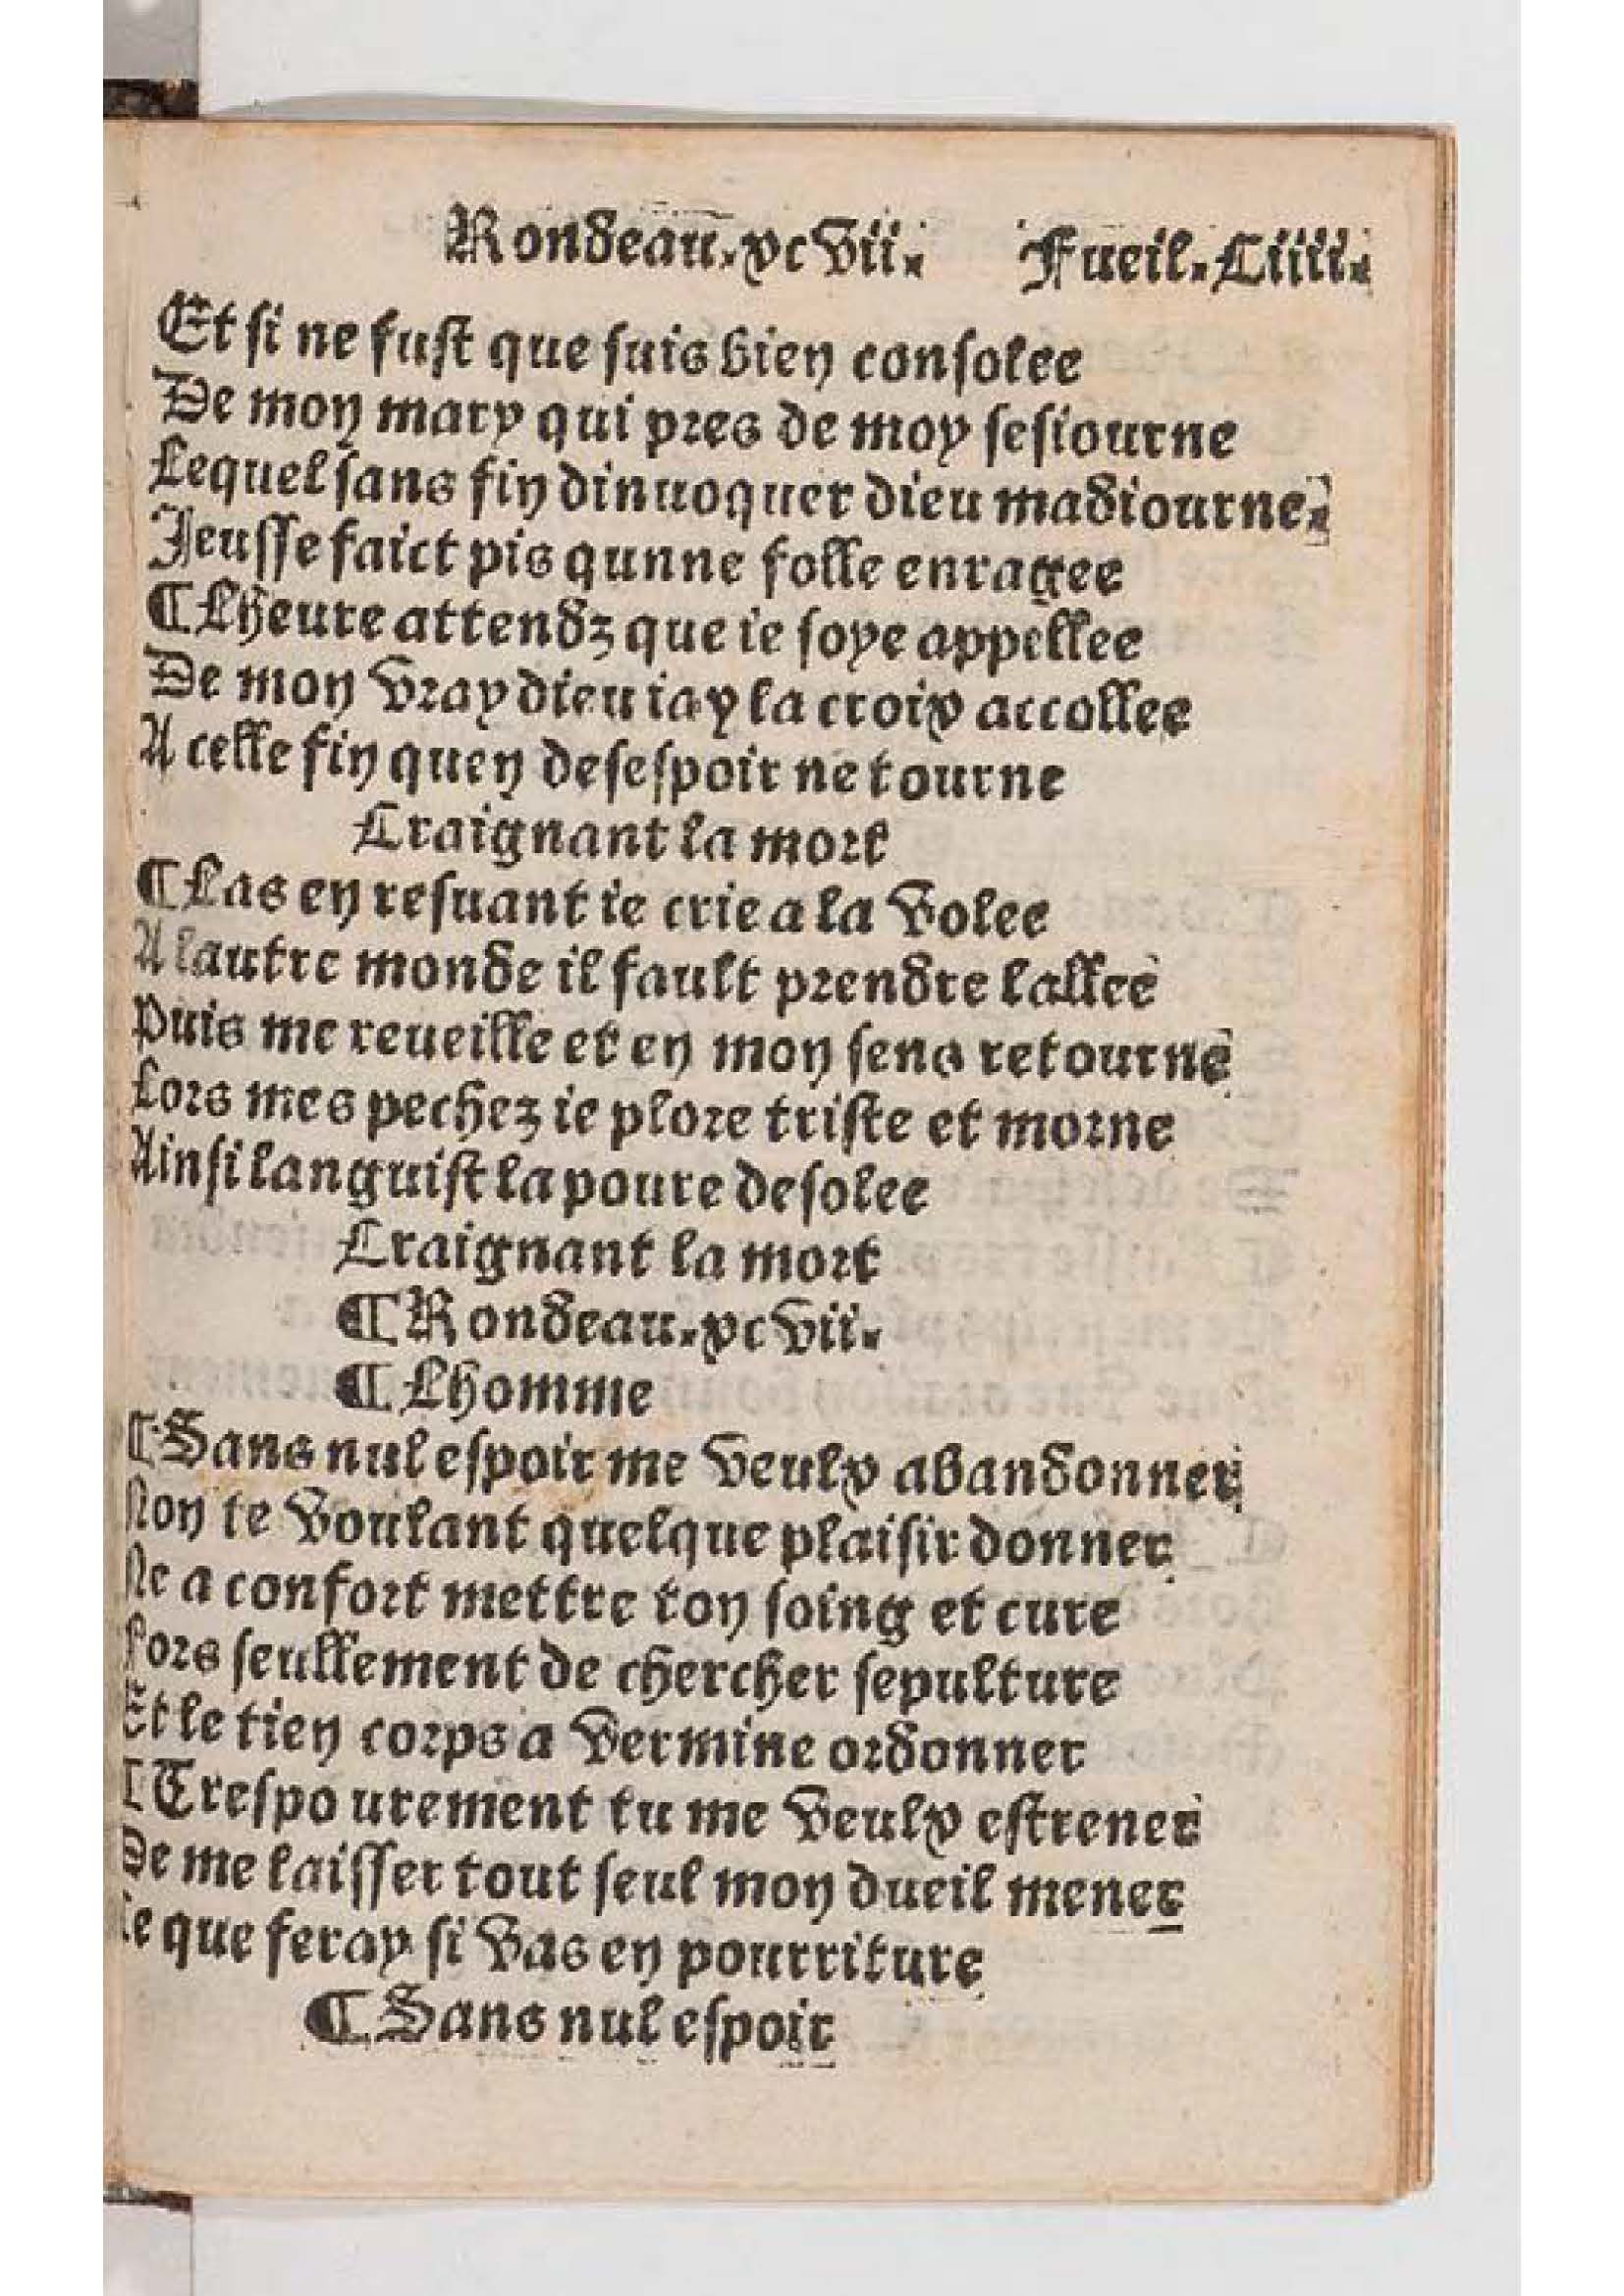 Rondeau.xcvii. Fueil.Ciiii.
Et si ne fust que suis bien consolee
De mon mary qui pres de moy sesiourne
Lequel sans fin dinuoquer dieu madiourne.
Jeusse faict pis qunne folle enragee
¶Lheure attendz que ie soye appellee
De mon vray dieu iay la croix accollee
A celle fin quen desespoir ne tourne
Craignant la mort
¶Las en resuant ie crie a la volee
A lautre monde il fault prendre lallee
Puis me reueille et en mon sens retourne
Lors mes pechez ie plore triste et morne
Ainsi languist la poure desolee
Craignant la mort
¶Rondeau.xcvii.
¶Lhomme
¶Sans nul espoir me veulx abandonner
Non te voulant quelque plaisir donner
Ne a confort mettre ton soing et cure
Fors seullement de chercher sepulture
Et le tien corps a vermine ordonner
¶Trespourement tu me veulx estrener
De me laisser tout seul mon dueil mener
que feray si vas en pourriture
¶Sans nul espoir